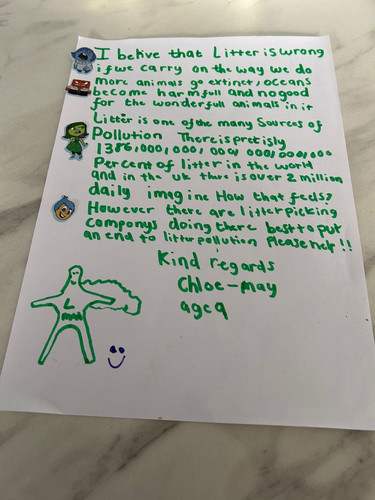 I belive that Litter is wrong
if we carry on the way we do
more animals go extinct, oceans
become harmfull and no good
for the wonderfull animals in it
Litter is one of the many sources of
Pollution There is pretisly
1386,000,000, 000, 000,000,000
Percent of litter in the world
and in the uk there is over 2 million
daily imagine How that feels?
However there are litter picking
companys doing there best to put
an end to litter pollution Please help!!
Kind regards
Chloe-may
age 9
L